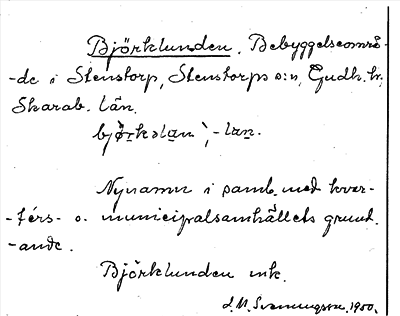 Björklunden. Bebyggelseområ-
-de i Stenstorp, Stenstorps s:n, Gudh. hr,
Skarab. län.
bjørkslan, -lan.
Nynamn i samb. med kvar-
-ters- o. municipalsamhällets grund.
-ande.
Björklunden mk.
1950.